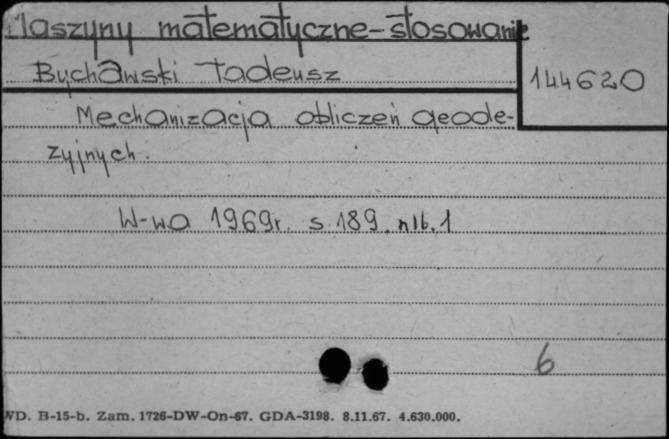 Maszyny matematyczne-stosowanie
Bychawski Tadeusz
144620
Mechanizacja obliczeń geode-
zyjnych.
W-wa 1969r. s.189. nlb.1
6
WD. B-15-b. Zam. 1726-DW-On-67. GDA-3198. 8.11.67. 4.630.000.